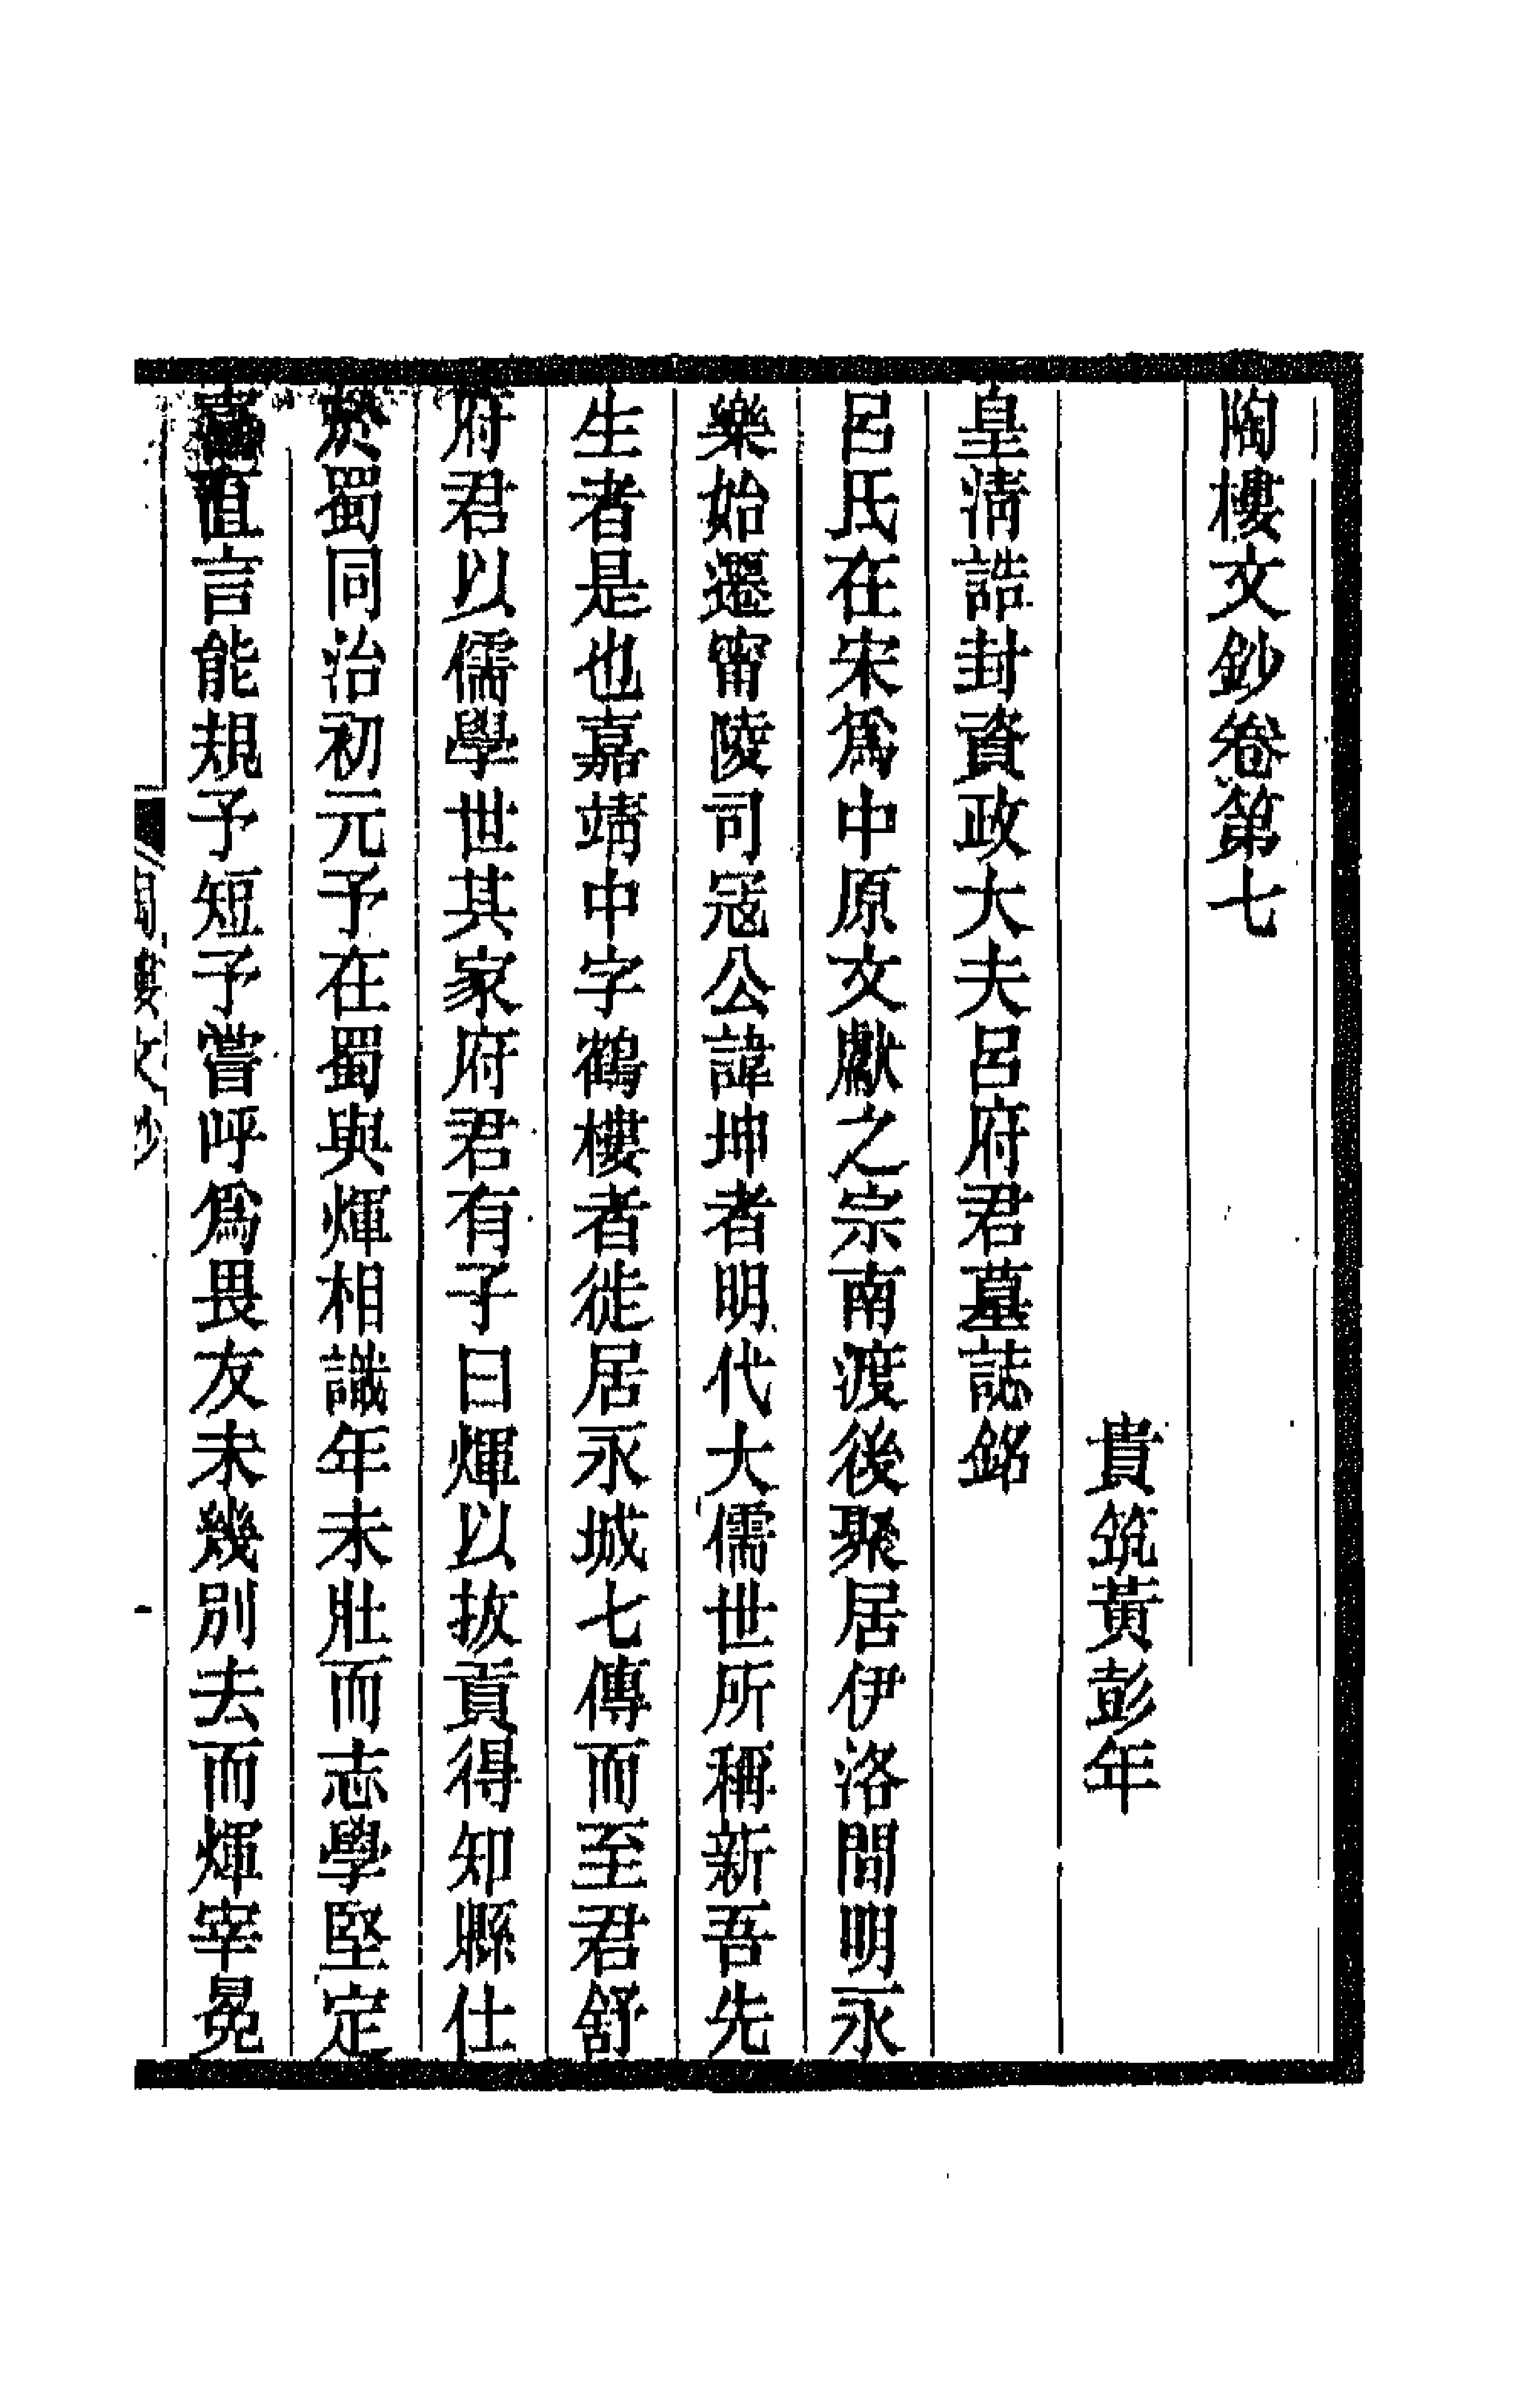 陶樓文鈔卷第七
貴筑黃彭年
皇淸誥封資政大夫呂府君墓誌銘
呂氏在宋爲中原文獻之宗南渡後聚居伊洛間明永
樂始遷甯陵司寇公諱坤者明代大儒世所稱新吾先
生者是也嘉靖中字鶴樓者徙居永城七傳而至君舒
府君以儒學世其家府君有子曰煇以拔貢得知縣仕
於蜀同治初元予在蜀與煇相識年未壯而志學堅定
喜直言能規予短予嘗呼爲畏友未幾別去而煇宰冕
陶樓文鈔
一